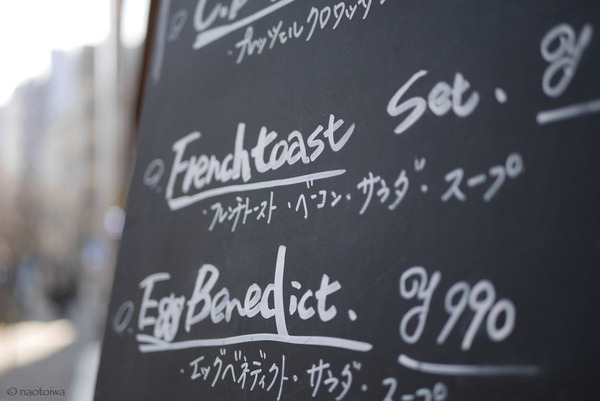 ・プレッツェルクロワッサ
French toast Set. ¥
・フレンチトースト・ベーコン・サラダ・スープ
Egg Benedict. ¥990
・エッグベネディクト・サラダ・スープ
© naotoiwa